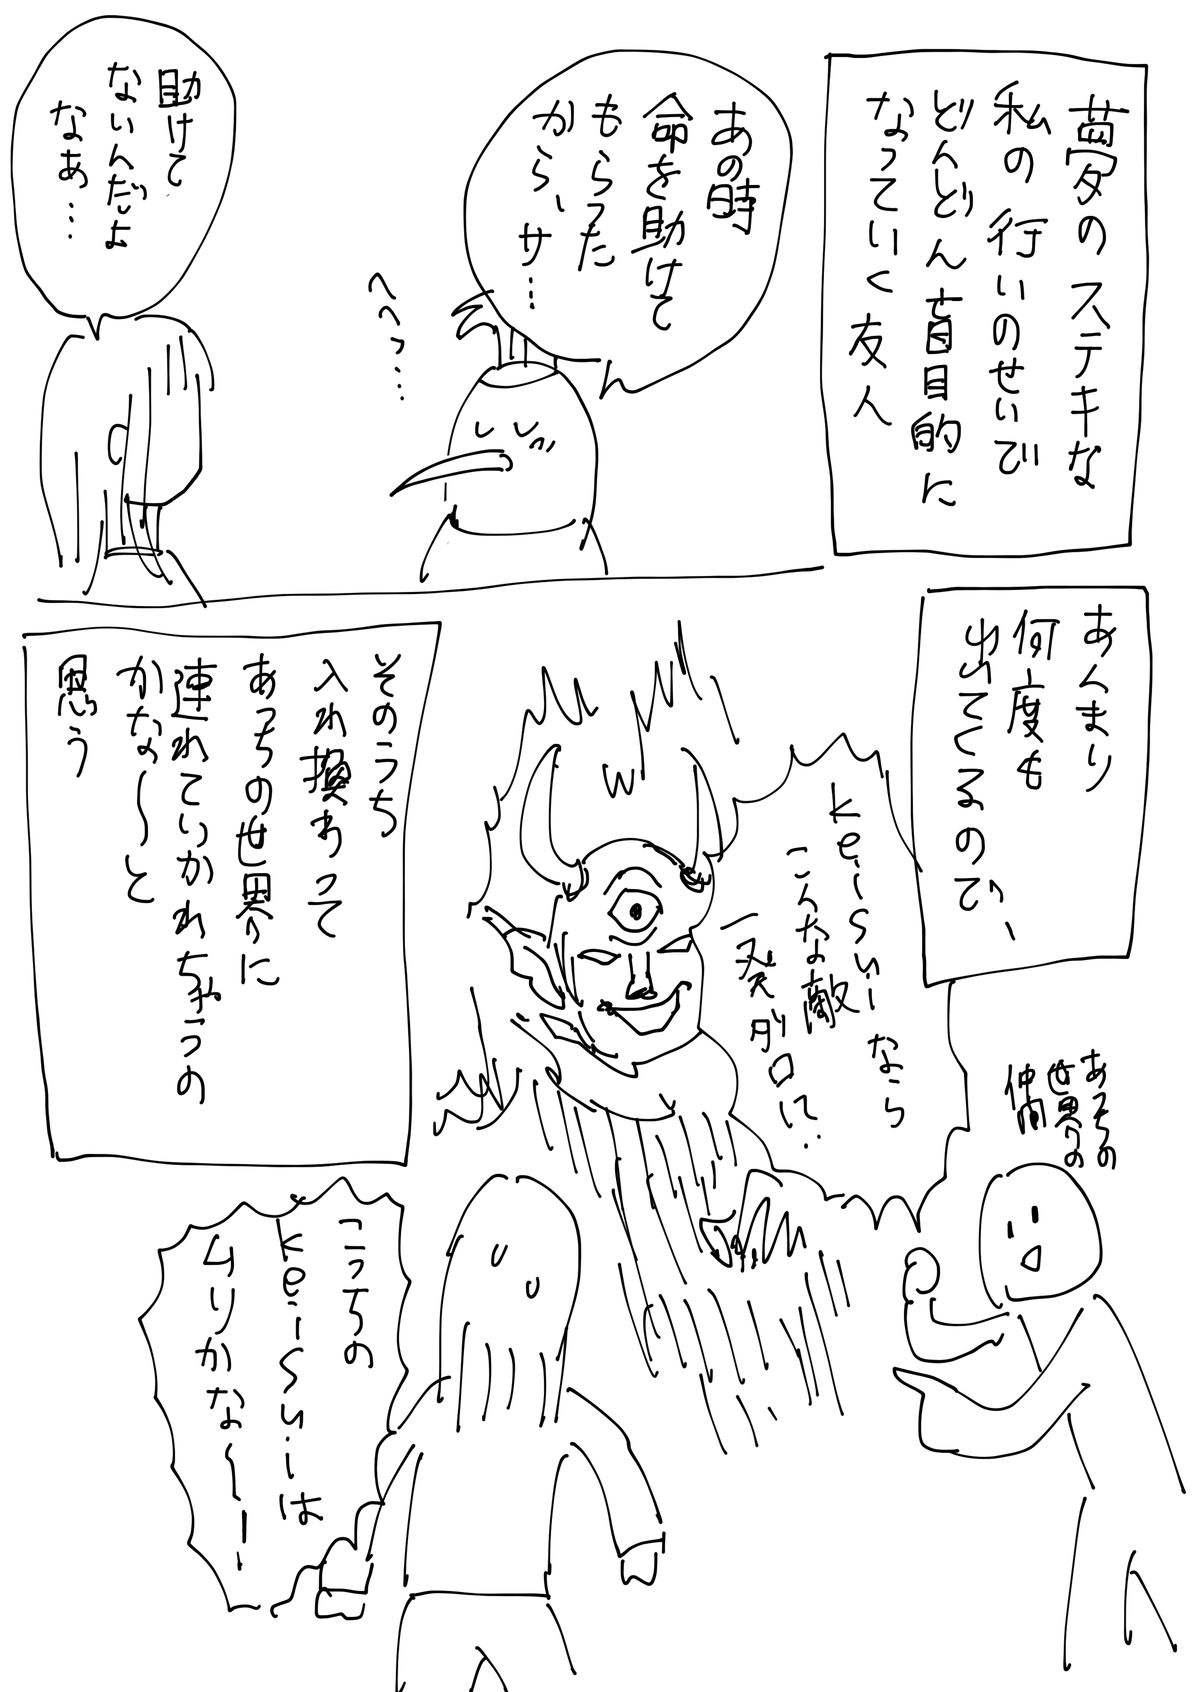 夢のステキな
私の行いのせいで
どんどん盲目的に
なっていく友人
あの時
命を助けて
もらった
から、サ…
へへっ…
助けて
ないんだよ
なあ…
あんまり
何度も
出てくるので、
keisuiなら
こんな敵
一発ダロに…
あっちの
世界の
仲間
そのうち
入れ換わって
あっちの世界に
連れていかれちゃうの
かな～と
思う
こっちの
keisuiは
ムリかな～